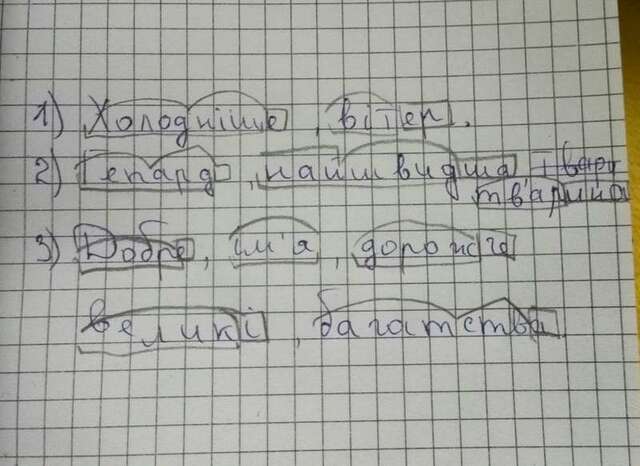 1) Холодніше, вітер.
2) Гепард, найшвидша, твари
тварина
3) Добре, ім'я, дорожче
великі, багатства